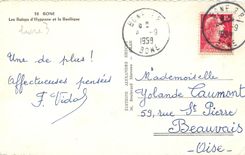 78 BONE
Les Ruines d'Hippone et la Basilique
Une de plus!
Affectueuses pensées
F. Vidal
BONE
1959
BONE
1959
Mademoiselle
Yolande Caumont
59, rue St Pierre
Beauvais
Oise.